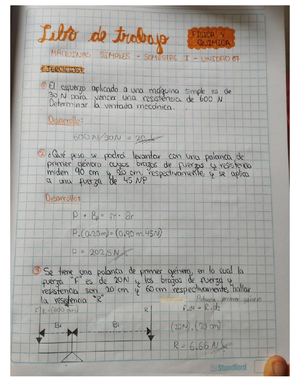 Libro de trabajo
FÍSICA Y
QUÍMICA
MÁQUINAS SIMPLES - SEMESTRE I - UNIDAD 07
EJERCICIOS:
① El esfuerzo aplicado a una máquina simple es de
30 N para vencer una resistencia de 600 N
Determinar la ventaja mecánica.
Desarrollo:
600N/30N = 20
② ¿Qué peso se podrá levantar con una palanca de
primer género cuyos brazos de fuerza y resistencia
miden 90 cm y 20 cm, respectivamente, y se aplica
a una fuerza de 45 N?
Desarrollo:
P.(0.20m)=(0,90m.45N)
P = 202,5N
③ Se tiene una palanca de primer género, en la cual la
fuerza "F" es de 20N y los brazos de fuerza y
resistencia son 20 cm y 60 cm respectivamente, hallar
la resistencia "R"
Palanca primer género
(20N).(20 cm)
R = 6,66 N
Standford